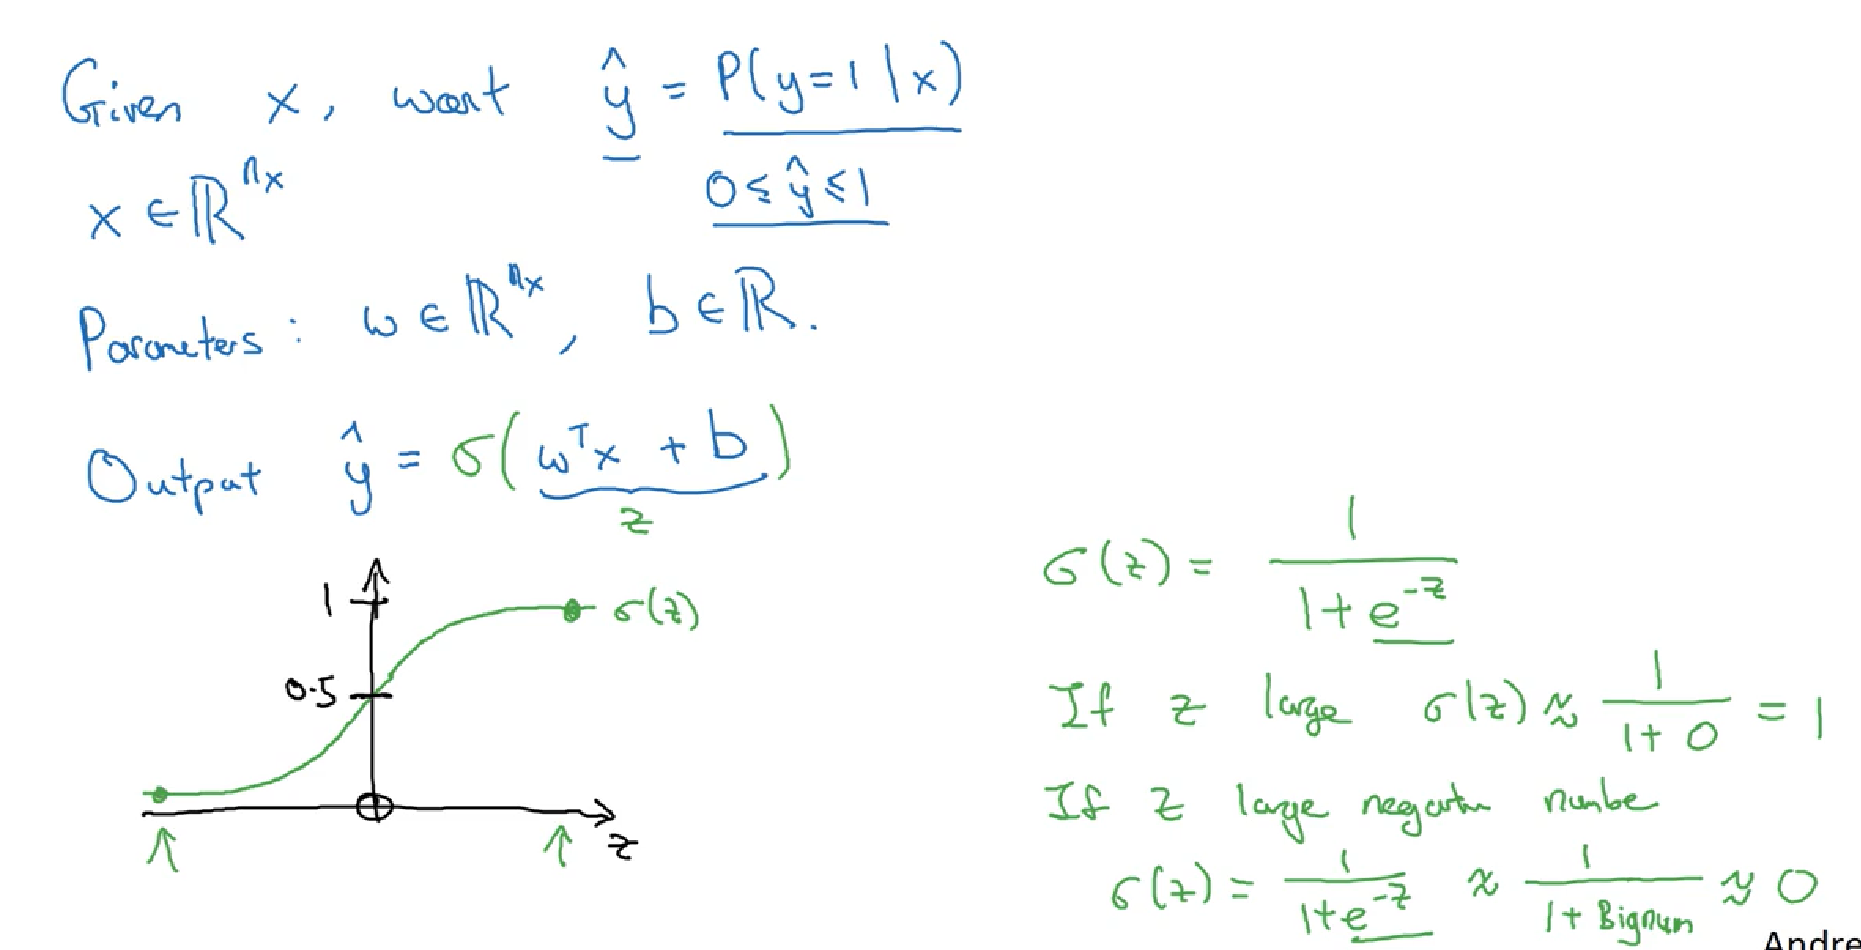 Given x, want ŷ = P(y=1 | x)
x ∈ ℝ^{n_x}
0 ≤ ŷ ≤ 1
Parameters: w ∈ ℝ^{n_x}, b ∈ ℝ.
Output ŷ = σ(w^T x + b)
z
1
σ(z)
0.5
z
σ(z) = 1 / (1 + e^{-z})
If z large σ(z) ≈ 1 / (1 + 0) = 1
If z large negative numbe
σ(z) = 1 / (1 + e^{-z}) ≈ 1 / (1 + Bignum) ≈ 0
Andre